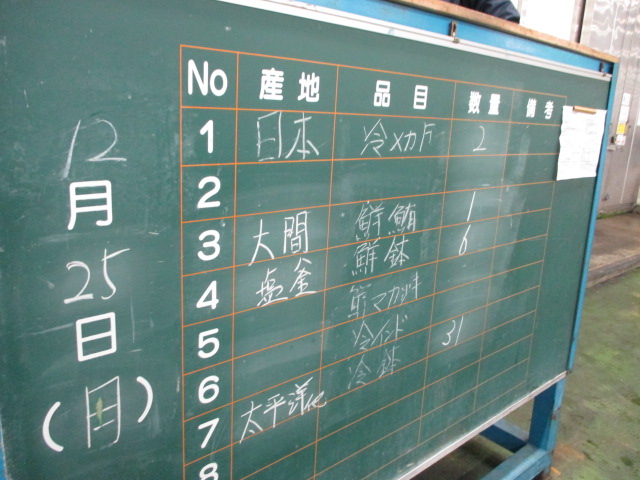 No 産地 品目 数量 備考
12
月
25
日
(日)
1 日本 冷メカド 2
2
3 大間 鮮鮪 1
4 塩釜 鮮鉢 6
5 マカジキ
6 冷インド 31
7 太平洋 冷鉢
8